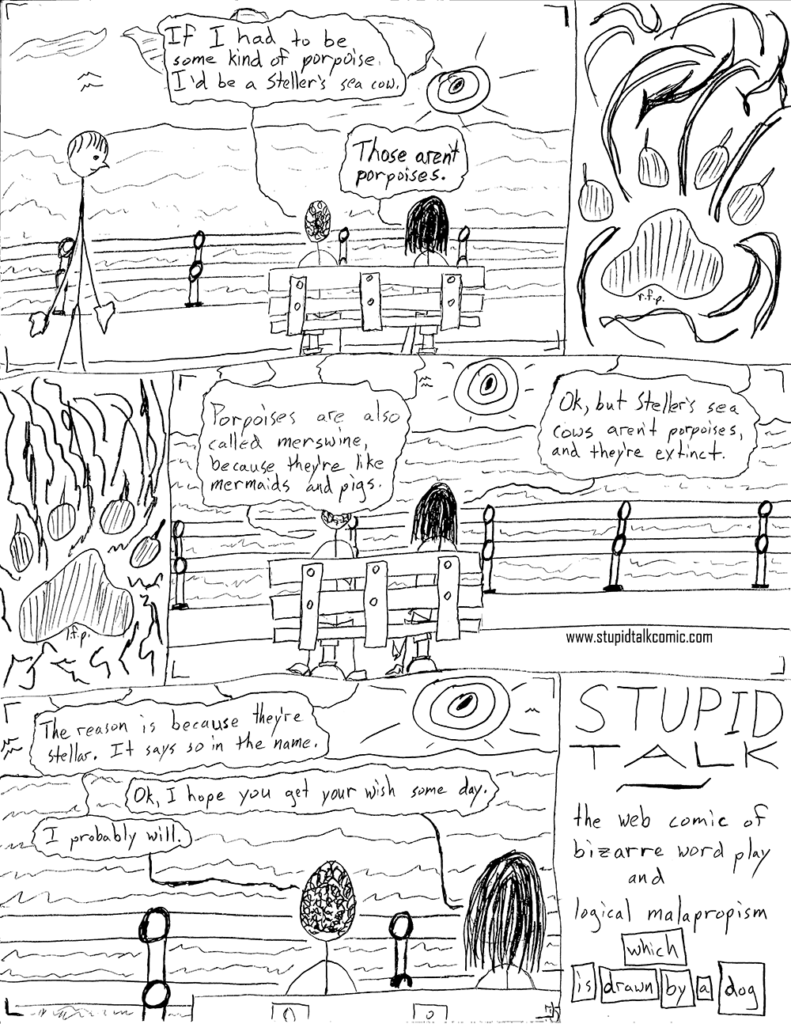 If I had to be
some kind of porpoise
I'd be a Steller's sea cow.
Those aren't
porpoises.
r.f.p.
l.f.p.
Porpoises are also
called merswine,
because they're like
mermaids and pigs.
Ok, but Steller's sea
cows aren't porpoises,
and they're extinct.
www.stupidtalkcomic.com
The reason is because they're
stellar. It says so in the name.
Ok, I hope you get your wish some day.
I probably will.
STUPID
TALK
the web comic of
bizarre word play
and
logical malapropism
which
is drawn by a dog